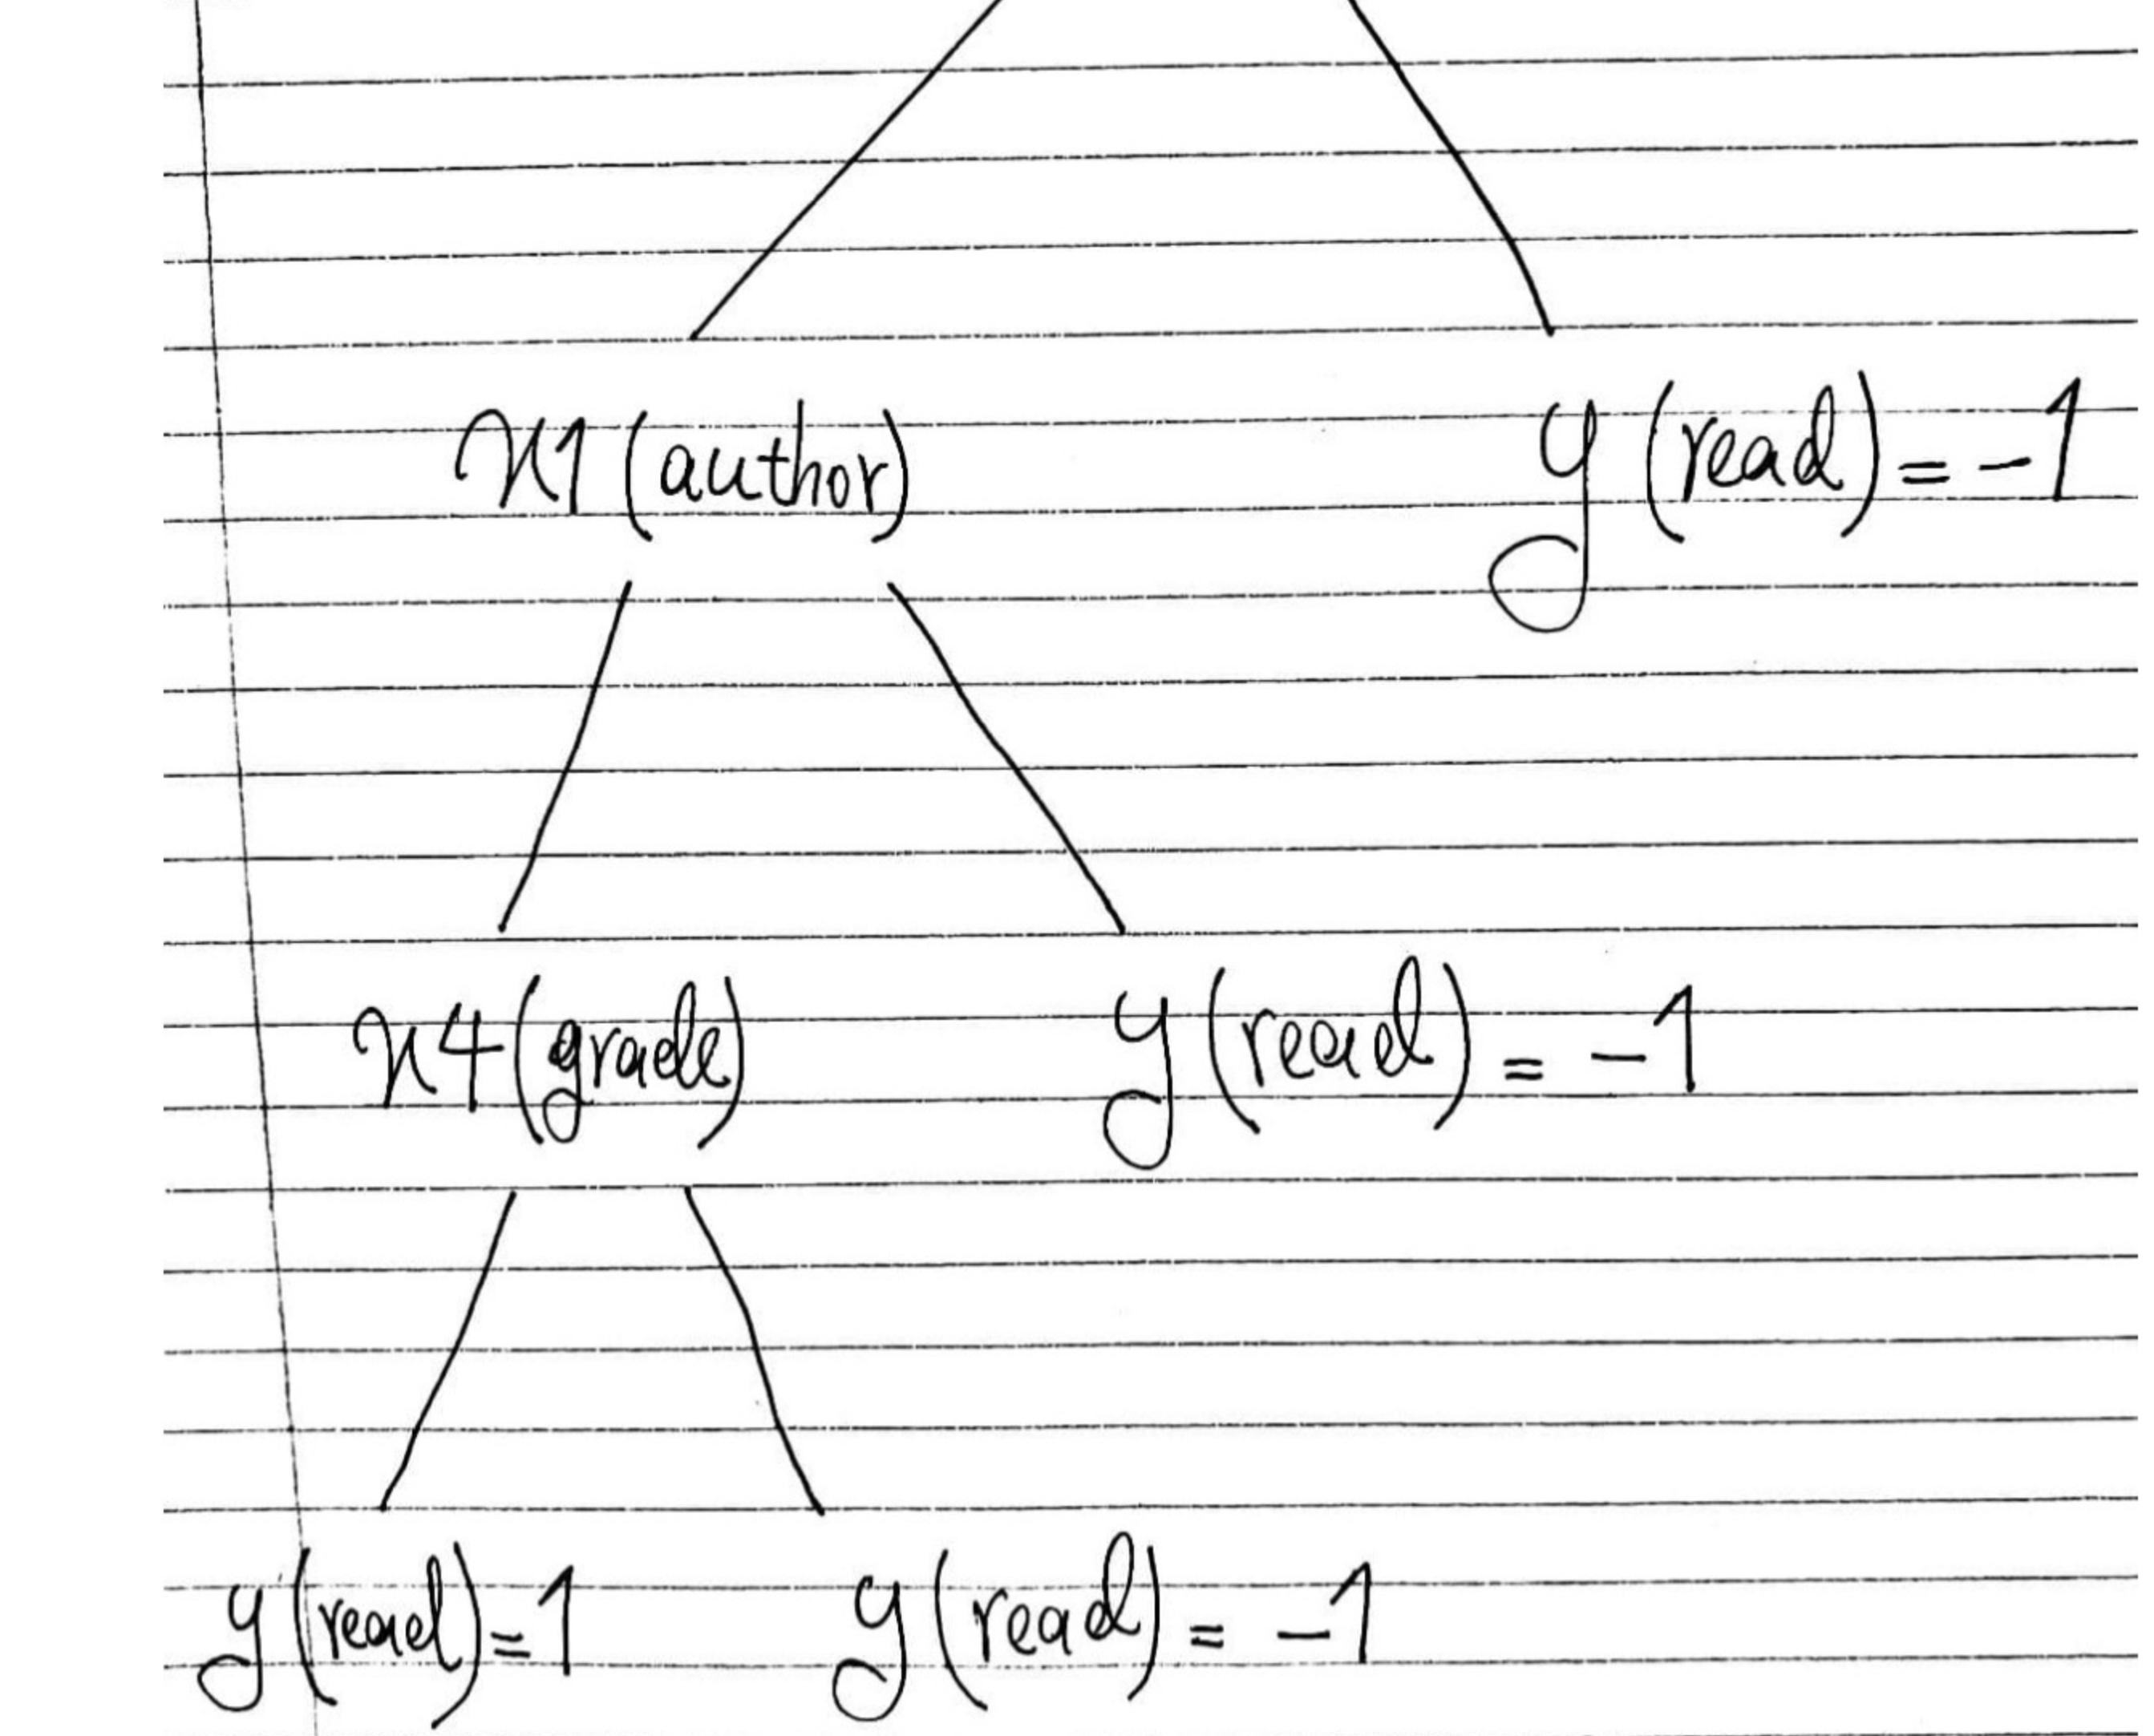 x1 (author) y (read) = -1
x4 (grade) y (read) = -1
y (read) = 1 y (read) = -1